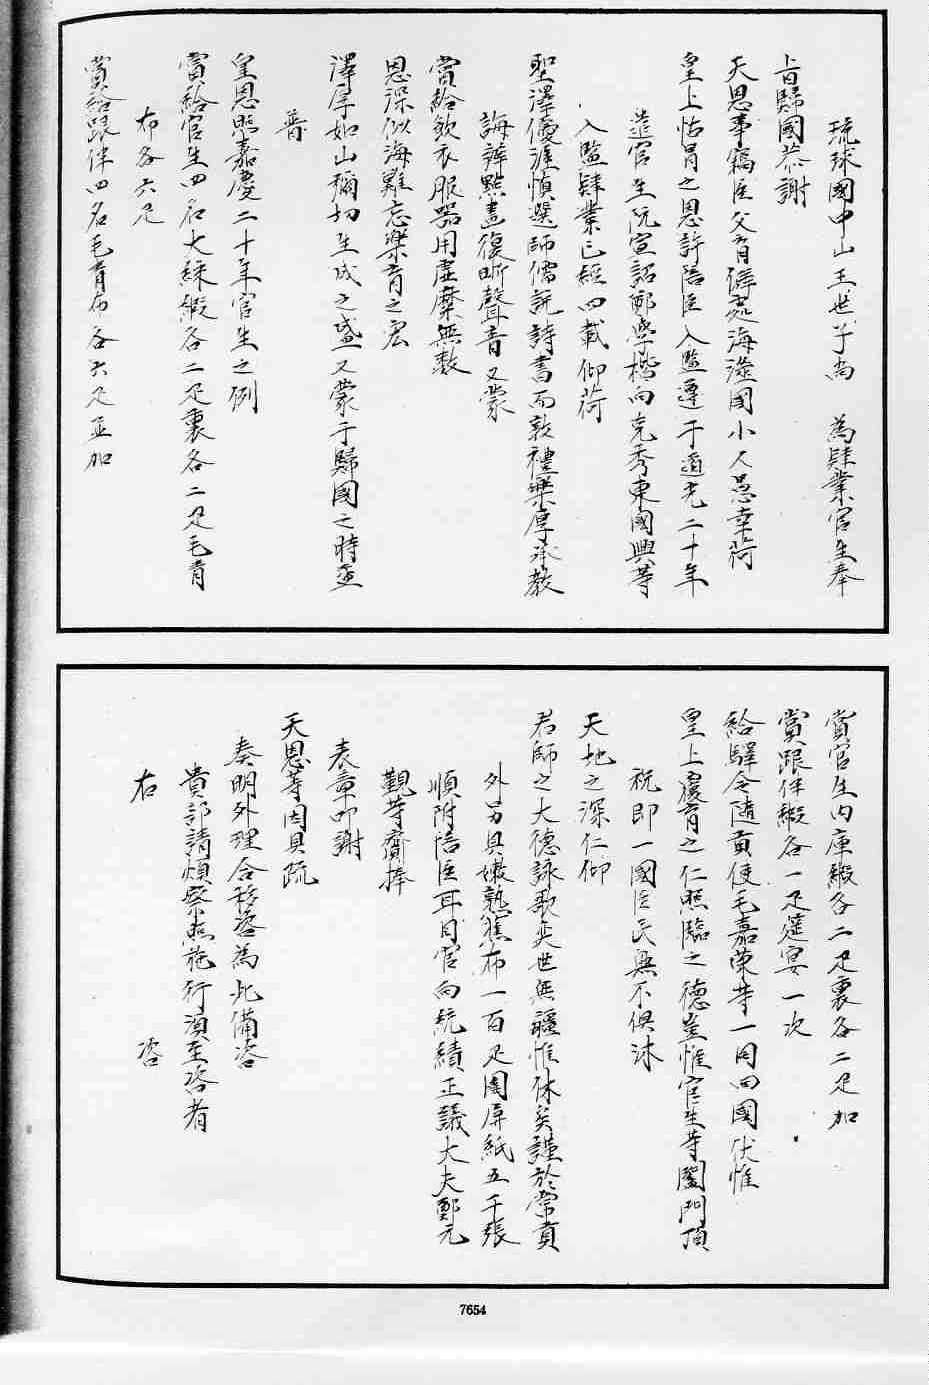 琉球國中山王世子尚　為肄業官生奉
旨歸國恭謝
天恩事竊臣父育僻處海澨國小人愚幸荷
皇上怙冒之恩許陪臣入監遵于道光二十年
遣官生阮宣詔鄭學楷向克秀東國興等
入監肄業已經四載仰荷
聖澤優渥慎選師儒說詩書而敦禮樂厚承教
誨辨點畫復晰聲音又蒙
賞給飲衣服器用虛糜無數
恩深似海難忘樂育之宏
澤厚如山彌切生成之盛又蒙于歸國之時並
普
皇恩照嘉慶二十年官生之例
賞給官生四名大綵緞各二疋裏各二疋毛青
布各六疋
賞給跟伴四名毛青布各六疋並加
賞官生內庫緞各二疋裏各二疋加
賞跟伴緞各一疋筵宴一次
給驛令隨貢使毛嘉榮等一同回國伏惟
皇上覆育之仁照臨之德豈惟官生等闔門頂
祝即一國臣民無不俱沐
天地之深仁仰
君師之大德詠歌奕世無疆惟休矣謹於常貢
外另具嫩熟蕉布一百疋圍屏紙五千張
順附陪臣耳目官向統績正議大夫鄭元
覲等齎捧
表章叩謝
天恩等因具疏
奏明外理合移咨為此備咨
貴部請煩察照施行須至咨者
右　咨
7654